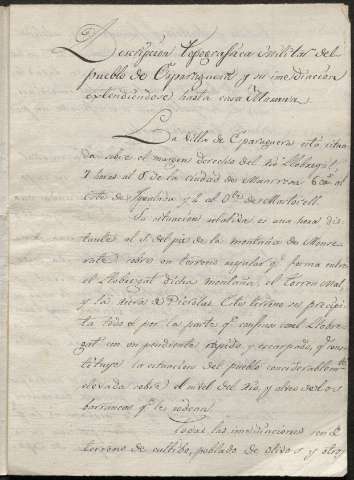 Descripción topografica militar del
pueblo de Esparaguera y su imediación
extendiendose hasta casa Masana.
La Villa de Esparaguera está situa-
da sobre el margen derecho del rio Llobregat,
7 horas al S. de la ciudad de Manresa 6 al
Este de Igualada y 2 al O. de Martorell.
Su situacion relativa es una hora dis-
tante al S. del pie de la montaña de Monse-
rrate sobre un terreno regular q.e forma entre
el Llobregat dicha montaña, el torren Mal,
y la riera de Pierola. Este terreno se precipi-
ta todo por la parte q.e confina con el Llobre-
gat con un pendiente rápido y escarpado, q.e cons-
tituye la situacion del pueblo considerablem.te
elevada sobre el nivel del rio y alveo de los
barrancos q.e le rodean.
Todas las imediaciones son de
terreno de cultibo, poblado de olivos y otros